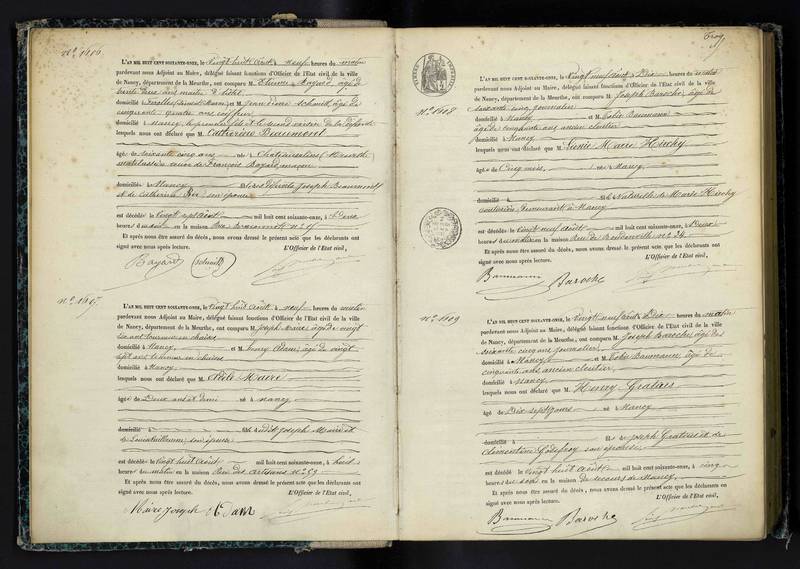 nº 1606
L'AN MIL HUIT CENT SOIXANTE-ONZE, le vingt huit août à neuf heures du matin
pardevant nous Adjoint au Maire, délégué faisant fonctions d'Officier de l'Etat civil de la ville
de Nancy, département de la Meurthe, ont comparu M. Etienne Bayard âgé de
trente deux ans
domicilié à Ixelles et M. Jean Pierre Schmitt, âgé de
cinquante quatre ans coiffeur
domicilié à Nancy, le premier fils et le second voisin de la défunte
lesquels nous ont déclaré que M. Catherine Beaumont
âgé de soixante cinq ans né à Chateausalins Meurthe
veuve de François Bayard
domicilié à Nancy fils des défunts Joseph Beaumont
et de Catherine son épouse
est décédé le vingt sept août mil huit cent soixante-onze, à deux
heures du soir en la maison Rue
Et après nous être assuré du décès, nous avons dressé le présent acte que les déclarants ont
signé avec nous après lecture. L'Officier de l'Etat civil,
Bayard Schmitt
nº 1607
L'AN MIL HUIT CENT SOIXANTE-ONZE, le vingt huit août à neuf heures du matin
pardevant nous Adjoint au Maire, délégué faisant fonctions d'Officier de l'Etat civil de la ville
de Nancy, département de la Meurthe, ont comparu M. Joseph Maire, âgé de vingt
six ans tourneur en chaises
domicilié à Nancy et M. Henry Adam, âgé de vingt
sept ans tourneur en chaises
domicilié à Nancy
lesquels nous ont déclaré que M. Adèle Maire
âgé de deux ans et demi né à Nancy
domicilié à fils dudit Joseph Maire et
de son épouse
est décédé le vingt huit août mil huit cent soixante-onze, à huit
heures du matin en la maison Rue des artisans nº 59
Et après nous être assuré du décès, nous avons dressé le présent acte que les déclarants ont
signé avec nous après lecture. L'Officier de l'Etat civil,
Maire Joseph h Adam
nº 1608
L'AN MIL HUIT CENT SOIXANTE-ONZE, le vingt neuf août à dix heures du matin
pardevant nous Adjoint au Maire, délégué faisant fonctions d'Officier de l'Etat civil de la ville
de Nancy, département de la Meurthe, ont comparu M. Joseph Baroche, âgé de
soixante cinq ans journalier
domicilié à Nancy et M. Felix Baumann
âgé de cinquante ans ancien cloutier
domicilié à Nancy
lesquels nous ont déclaré que M. Marie Hischy
âgé de cinq mois né à Nancy
domicilié à fils naturelle de Marie Hischy
couturière demeurant à Nancy
est décédé le vingt neuf août mil huit cent soixante-onze, à deux
heures du matin en la maison Rue de Boudonville nº 24
Et après nous être assuré du décès, nous avons dressé le présent acte que les déclarants ont
signé avec nous après lecture. L'Officier de l'Etat civil,
Baumann Baroche
nº 1609
L'AN MIL HUIT CENT SOIXANTE-ONZE, le vingt neuf août à dix heures du matin
pardevant nous Adjoint au Maire, délégué faisant fonctions d'Officier de l'Etat civil de la ville
de Nancy, département de la Meurthe, ont comparu M. Joseph Baroche, âgé de
soixante cinq ans journalier
domicilié à Nancy et M. Felix Baumann âgé de
cinquante ans ancien cloutier
domicilié à Nancy
lesquels nous ont déclaré que M. Henry
âgé de dix sept jours né à Nancy
domicilié à fils de Joseph et de
Clémentine Godefroy son épouse
est décédé le vingt huit août mil huit cent soixante-onze, à cinq
heures du soir en la maison de secours de Nancy
Et après nous être assuré du décès, nous avons dressé le présent acte que les déclarants ont
signé avec nous après lecture. L'Officier de l'Etat civil,
Baumann Baroche